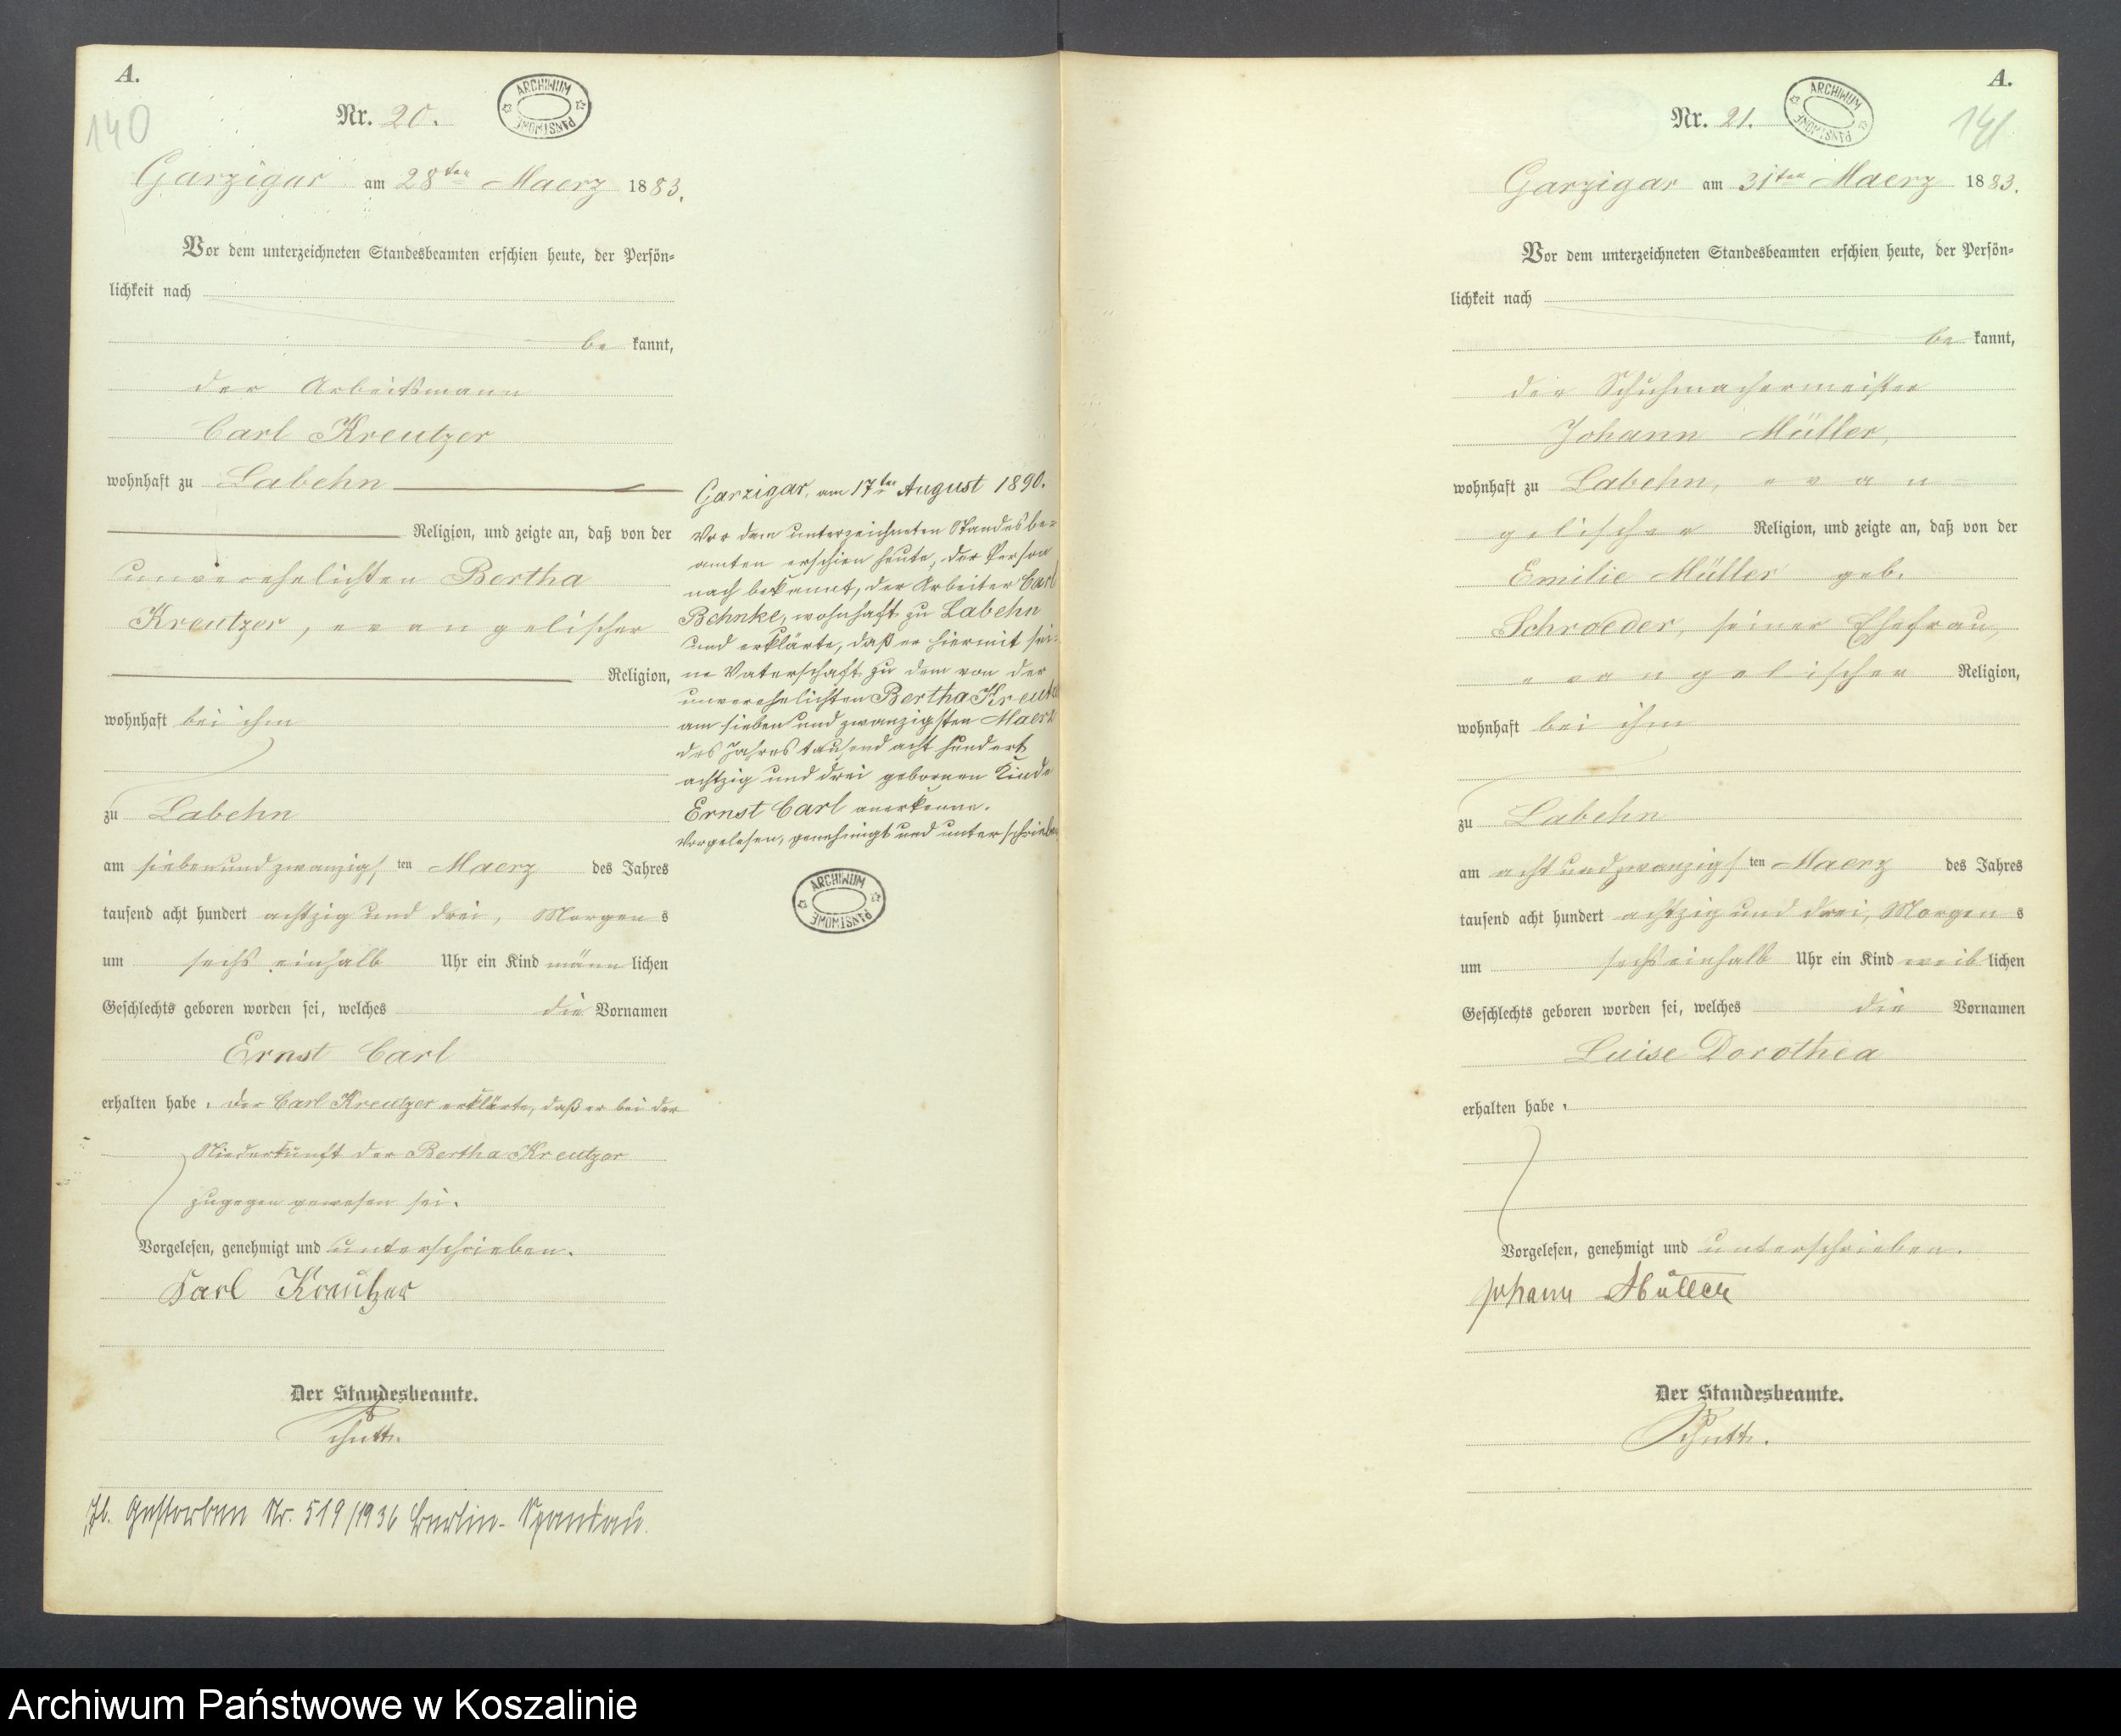 A.
140
Nr. 20.
ARCHIWUM PAŃSTWOWE
Garzigar am 28ten Maerz 1883.
Vor dem unterzeichneten Standesbeamten erschien heute, der Persön=
lichkeit nach
be kannt,
der Arbeitsmann
Carl Kreutzer
wohnhaft zu Labehn
Religion, und zeigte an, daß von der
unverehelichten Bertha
Kreutzer, evangelischer
Religion,
wohnhaft bei ihm
zu Labehn
am siebenundzwanzigsten Maerz des Jahres
tausend acht hundert achtzig und drei, Morgens
um sechs einhalb Uhr ein Kind männlichen
Geschlechts geboren worden sei, welches die Vornamen
Ernst Carl
erhalten habe. Der Carl Kreutzer erklärte, daß er bei der
Niederkunft der Bertha Kreutzer
zugegen gewesen sei.
Vorgelesen, genehmigt und unterschrieben.
Karl Kreutzer
Der Standesbeamte.
Schutt.
Gestorben Nr. 519/1936 Berlin-Spandau.
Garzigar, am 17ten August 1890.
Vor dem unterzeichneten Standesbe=
amten erschien heute, der Person
nach bekannt, der Arbeiter Carl
Behnke, wohnhaft zu Labehn
und erklärte, daß er hiermit sei=
ne Vaterschaft zu dem von der
unverehelichten Bertha Kreutz
am sieben und zwanzigsten Maerz
des Jahres tausend acht hundert
achtzig und drei geborenen Kinde
Ernst Carl anerkenne.
Vorgelesen, genehmigt und unterschrieben
ARCHIWUM PAŃSTWOWE
A.
141
Nr. 21.
ARCHIWUM PAŃSTWOWE
Garzigar am 31ten Maerz 1883.
Vor dem unterzeichneten Standesbeamten erschien heute, der Persön=
lichkeit nach
be kannt,
der Schuhmachermeister
Johann Müller,
wohnhaft zu Labehn, evan=
gelischer Religion, und zeigte an, daß von der
Emilie Müller geb.
Schroeder, seiner Ehefrau,
evangelischer Religion,
wohnhaft bei ihm
zu Labehn
am acht und zwanzigsten Maerz des Jahres
tausend acht hundert achtzig und drei, Morgens
um sechs einhalb Uhr ein Kind weiblichen
Geschlechts geboren worden sei, welches die Vornamen
Luise Dorothea
erhalten habe.
Vorgelesen, genehmigt und unterschrieben.
Johann Müller
Der Standesbeamte.
Schutt.
Archiwum Państwowe w Koszalinie